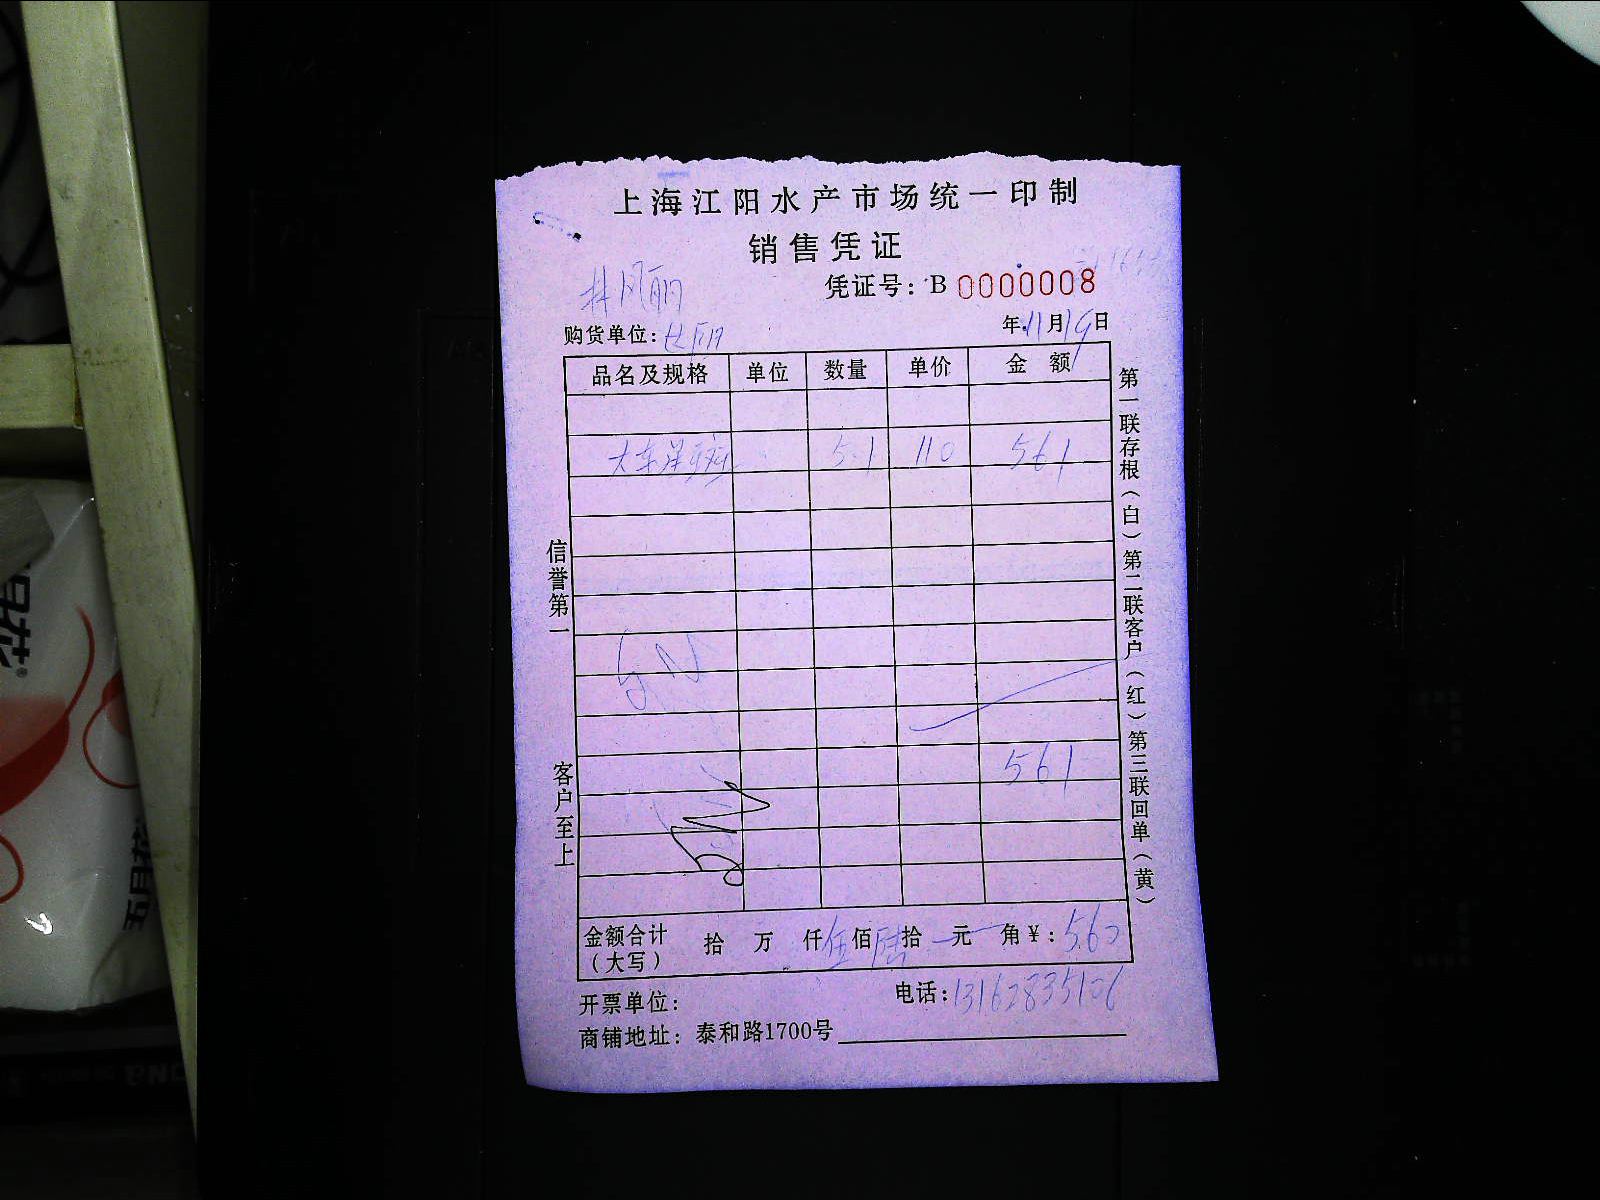 上海江阳水产市场统一印制
销售凭证
凭证号：B 0000008
购货单位：
年11月19日
品名及规格 单位 数量 单价 金额
5.1 110 561
561
金额合计（大写） 拾 万 仟伍佰陆拾 元 角￥：560
电话：13162835106
开票单位：
商铺地址：泰和路1700号
信誉第一
客户至上
第一联存根（白）第二联客户（红）第三联回单（黄）